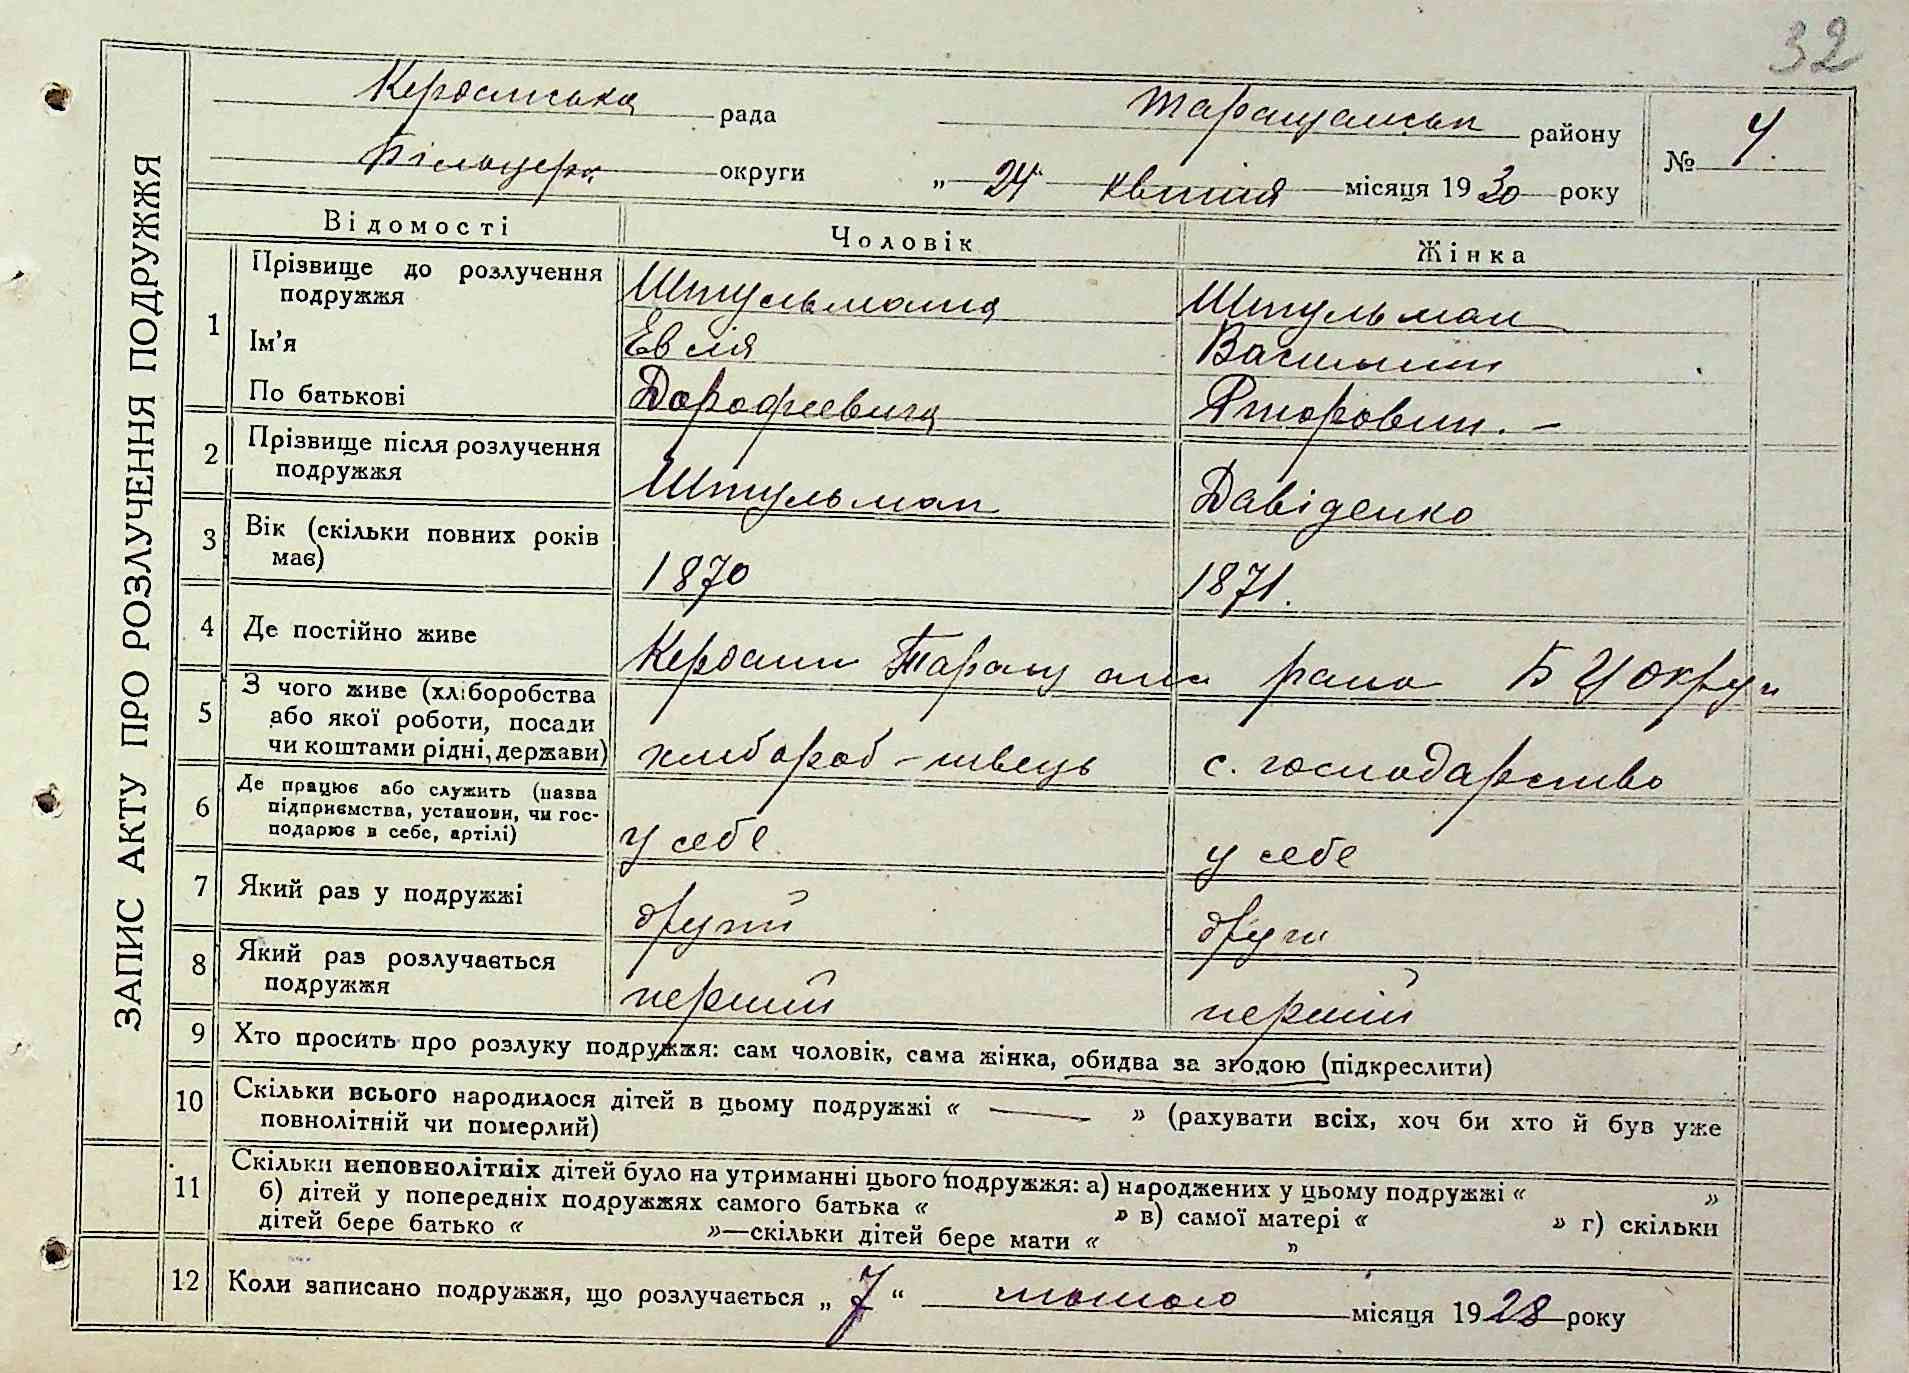 32
ЗАПИС АКТУ ПРО РОЗЛУЧЕННЯ ПОДРУЖЖЯ
Кердамська рада Таращанськ району № 4.
Більоцерк округи „24“ квітня місяця 1930 року
Відомості Чоловік Жінка
1 Прізвище до розлучення подружжя Штульмана Штульман
Ім'я Евсія
По батькові Дорофеевича
2 Прізвище після розлучення подружжя Штульман Давіденко
3 Вік (скільки повних років має) 1870 1871.
4 Де постійно живе рано Б Ц Округи
5 З чого живе (хліборобства або якої роботи, посади чи коштами рідні, держави) хлибороб - швець с. господарство
6 Де працює або служить (назва підприємства, установи, чи господарює в себе, артілі) у себе у себе
7 Який раз у подружжі другий други
8 Який раз розлучається подружжя перший перший
9 Хто просить про розлуку подружжя: сам чоловік, сама жінка, обидва за згодою (підкреслити)
10 Скільки всього народилося дітей в цьому подружжі « — » (рахувати всіх, хоч би хто й був уже
повнолітній чи померлий)
11 Скільки неповнолітніх дітей було на утриманні цього подружжя: а) народжених у цьому подружжі « »
б) дітей у попередніх подружжях самого батька « » в) самої матері « » г) скільки
дітей бере батько « »—скільки дітей бере мати « »
12 Коли записано подружжя, що розлучається „7“ лютого місяця 1928 року